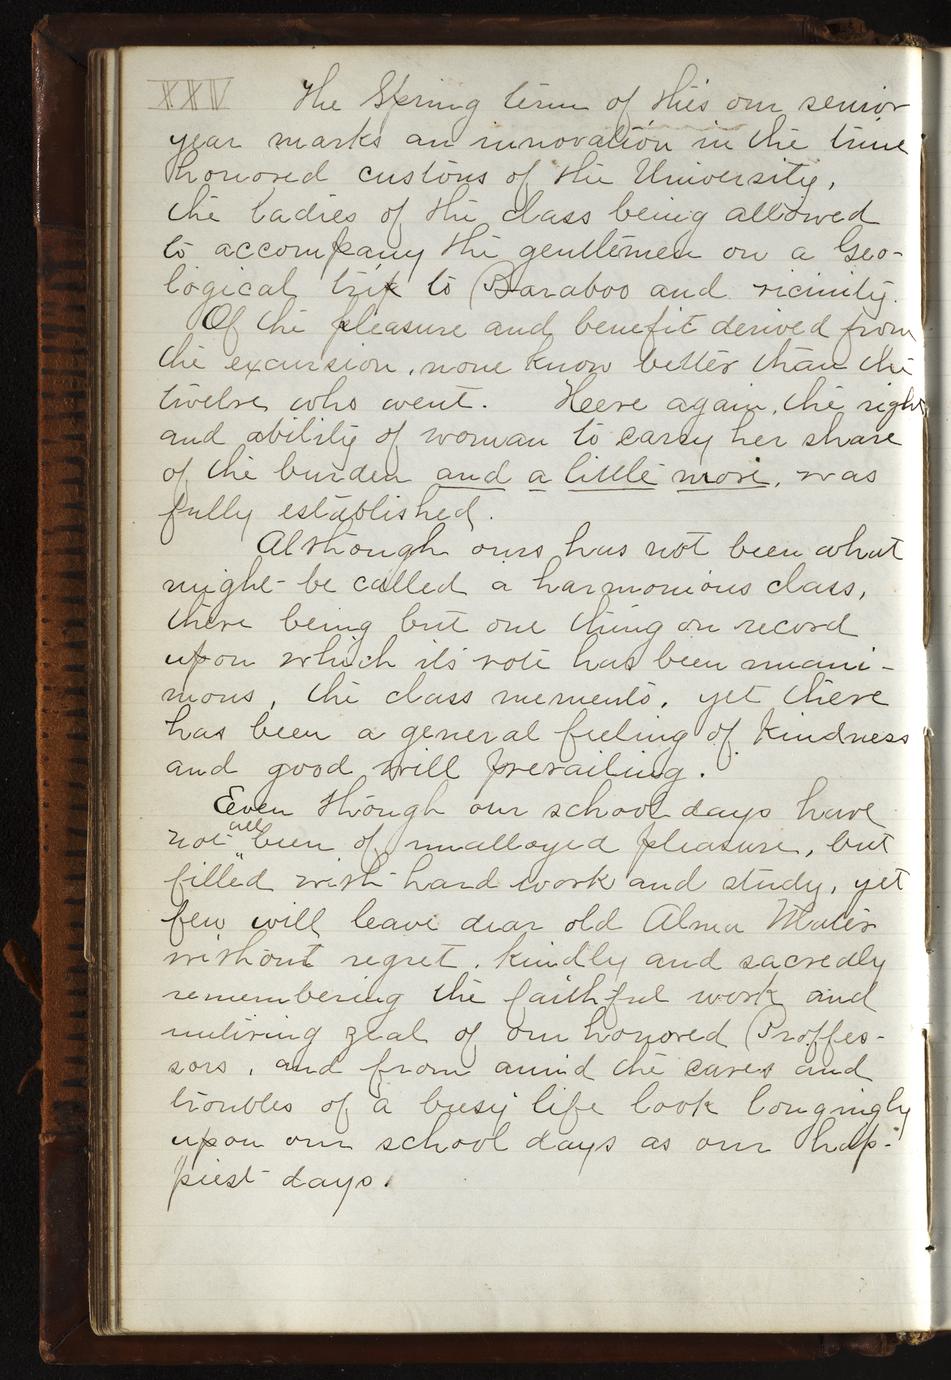 XXV The Spring term of this our senior
year marks an innovation in the time
honored customs of the University,
the ladies of the class being allowed
to accompany the gentlemen on a Geo-
logical trip to Baraboo and vicinity.
Of the pleasure and benefit derived from
the excursion, none know better than the
twelve who went. Heere again, the right
and ability of woman to carry her share
of the burden and a little more, was
fully established.
Although ours has not been what
might be called a harmonious class,
there being but one thing on record
upon which its vote has been unani-
mous, the class memento, yet there
has been a general feeling of kindness
and good will prevailing.
Even though our school days have
not all been of unalloyed pleasure, but
filled with hard work and study, yet
few will leave dear old Alma Mater
without regret, kindly and sacredly
remembering the faithful work and
untiring zeal of our honored Proffes-
sors, and from amid the cares and
troubles of a busy life look longingly
upon our school days as our hap-
piest days.